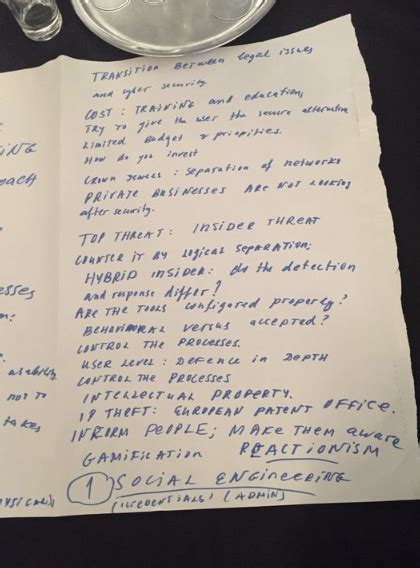 TRANSITION BETWEEN legal issues
and cyber security.
COST : TRAINING and education,
TRY to give the user the secure alternative
Limited Budget & priorities.
How do you invest
Crown jewels : separation of networks
PRIVATE BUSINESSES ARE NOT LOOKING
after security.
TOP THREAT : INSIDER THREAT
COUNTER IT by logical separation;
HYBRID INSIDER : do the detection
and response differ?
ARE THE TOOLS configured properly?
BEHAVIOURAL versus accepted?
CONTROL THE PROCESSES.
USER LEVEL : DEFENCE in DEPTH
CONTROL THE PROCESSES
INTELLECTUAL PROPERTY.
IP THEFT : EUROPEAN PATENT OFFICE.
INFORM PEOPLE; MAKE THEM AWARE
GAMIFICATION REACTIONISM
1 SOCIAL ENGINEERING
(CREDENTIALS) (ADMIN)
not to
takes